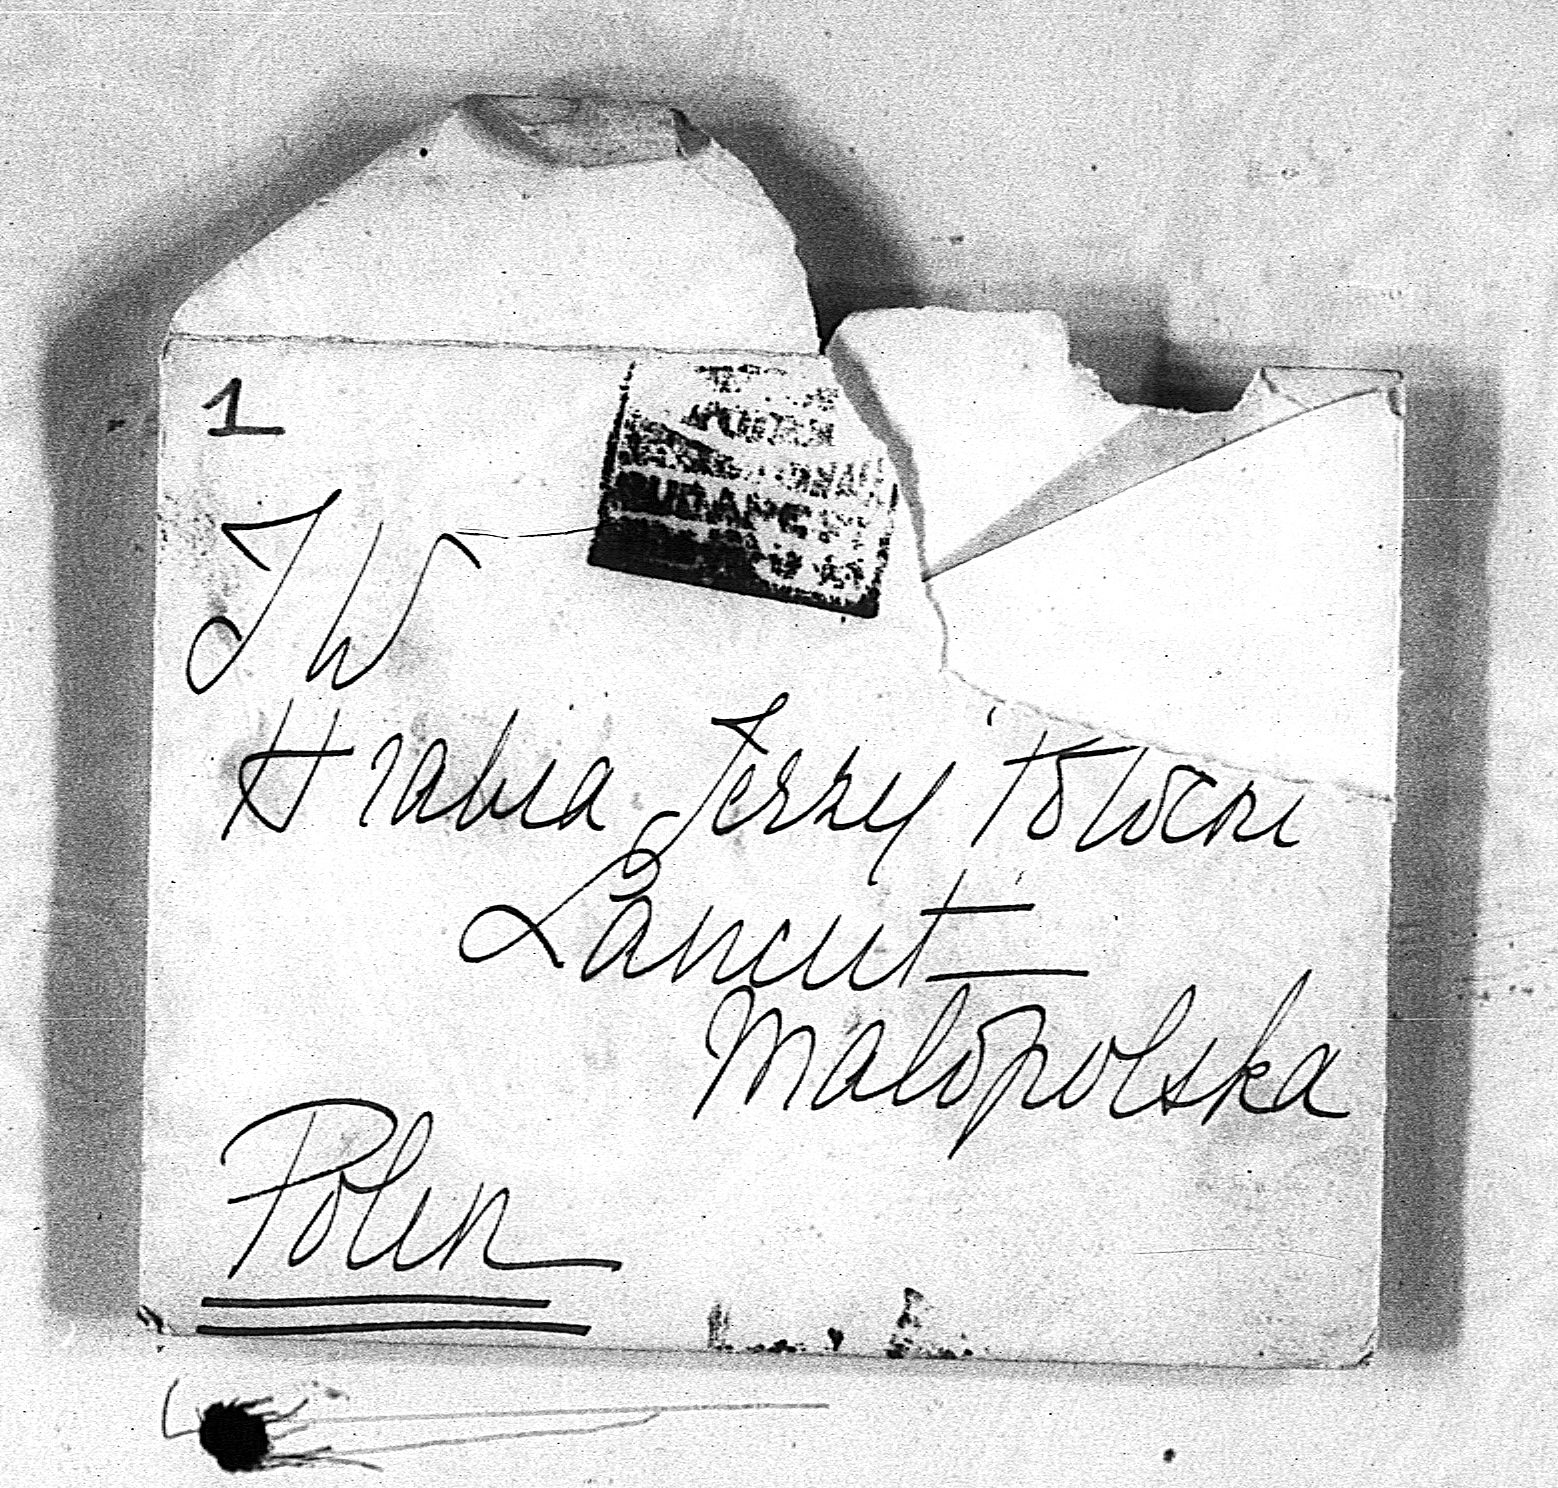 1
JW
Hrabia Jerzy Potocki
Lancut
Malopolska
Polen